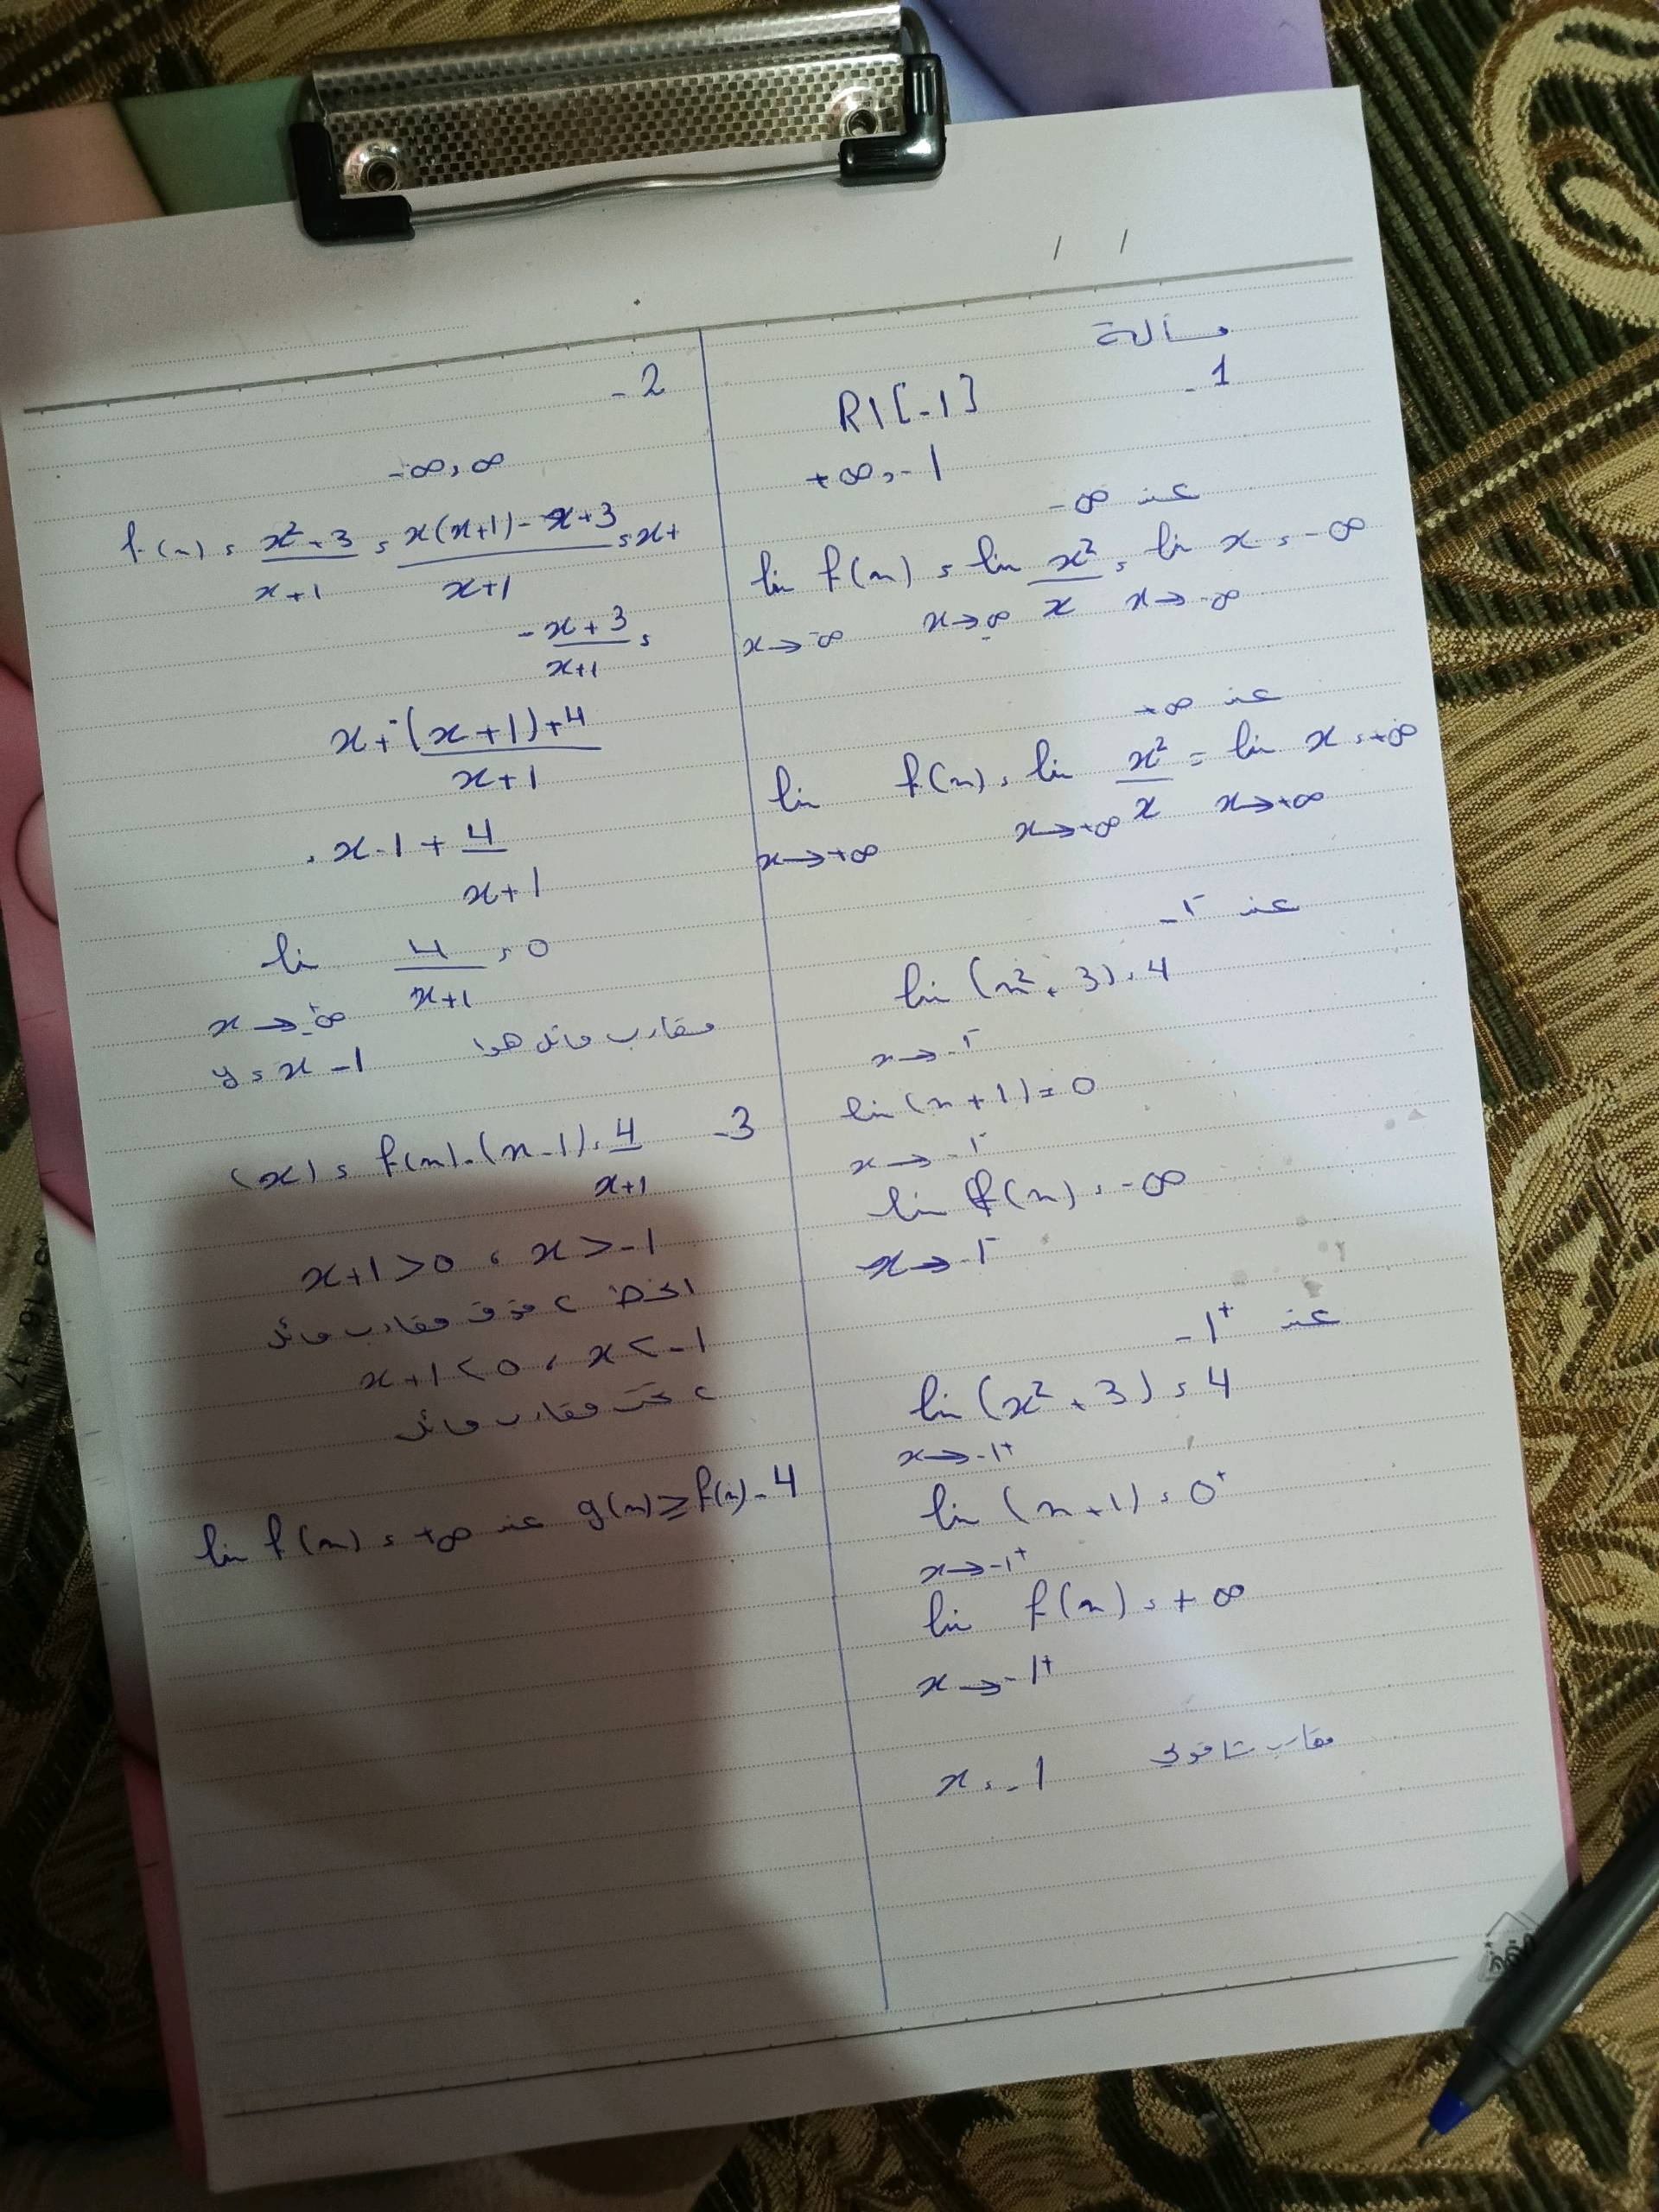 / /
مسألة
1 -
R \ [-1]
+∞, -1
عند ∞-
lim f(x) = lim x²/x = lim x = -∞
x→-∞ x→-∞ x→-∞
عند ∞+
lim f(x) = lim x²/x = lim x = +∞
x→+∞ x→+∞ x→+∞
عند -1⁻
lim (x² + 3) = 4
x→-1⁻
lim (x + 1) = 0
x→-1⁻
lim f(x) = -∞
x→-1⁻
عند -1⁺
lim (x² + 3) = 4
x→-1⁺
lim (x + 1) = 0⁺
x→-1⁺
lim f(x) = +∞
x→-1⁺
مقارب شاقولي x = -1
2 -
-∞, ∞
f(x) = x² + 3 / x + 1 = x(x+1) - x + 3 / x+1 = x +
-x + 3 / x+1 =
x + -(x + 1) + 4 / x + 1
= x - 1 + 4 / x + 1
lim 4 / x+1 = 0
x → ±∞
مقارب مائل هوا y = x - 1
3 - (x) = f(x) - (x - 1) = 4 / x+1
x+1 > 0 ، x > -1
الخط c فوق مقارب مائل
x+1 < 0 ، x < -1
c تحت مقارب مائل
4 - g(x) ≥ f(x) عند lim f(x) = +∞